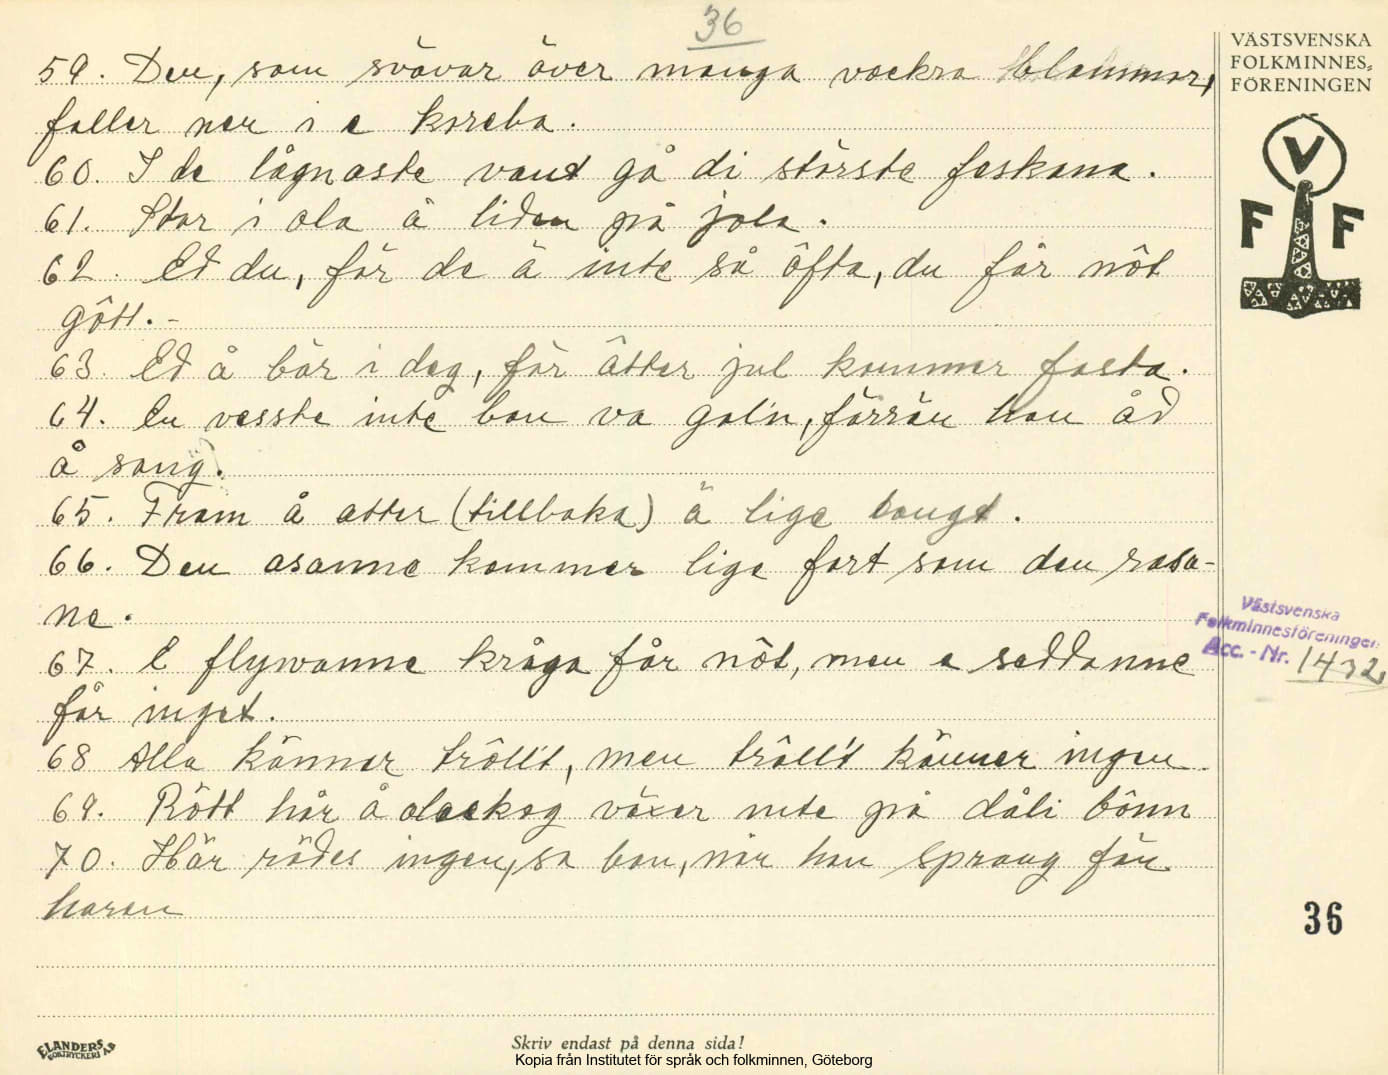 36
VÄSTSVENSKA
FOLKMINNES-
FÖRENINGEN
V
F F
59. Den, som svävar över manga vackra blommor,
faller ner i e koreba.
60. I de lågnaste vant gå di störste feskana.
61. Stor i ola å liden på jola.
62. Ed du, för de ä inte så ôfta, du får nôt
gôtt.-
63. Ed å bär i dag, för ätter jul kommer fasta.
64. En vesste inte ban va gal'n, förrän han åd
å sang.
65. Fram å atter (tillbaka) ä lige langt.
66. Den asanne kommer lige fort som den rasa-
ne.
67. E flywanne kråga får nôt, men e seddanne
får inget.
68 Alla kännar trôll't, men trôll't känner ingen.
69. Rött hår å alaskog växer inte på dåli bônn
70. Här rädes ingen, sa ban, när han sprang fär
haren
Västsvenska
Folkminnesföreningen
Acc.-Nr. 1432
36
ELANDERS
BOKTRYCKERI AB
Skriv endast på denna sida!
Kopia från Institutet för språk och folkminnen, Göteborg